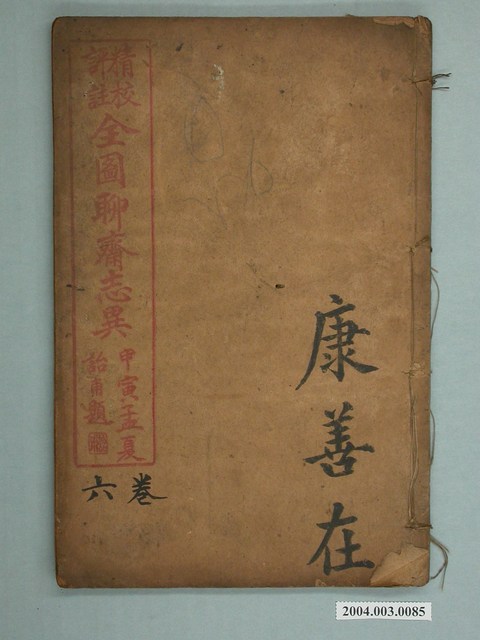 精校
評註
全圖聊齋志異
甲寅孟夏
飴甫題
卷
六
康善在
2004.003.0085